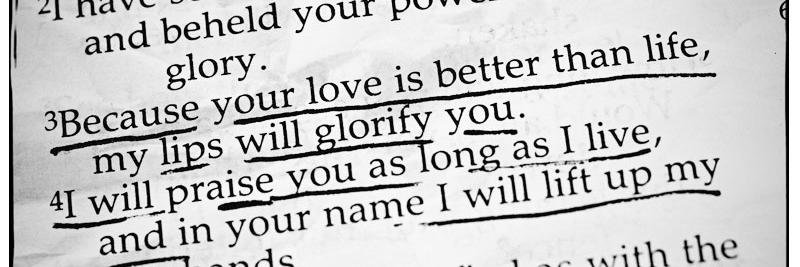 2I have
and beheld your
glory.
3Because your love is better than life,
my lips will glorify you.
4I will praise you as long as I live,
and in your name I will lift up my
with the